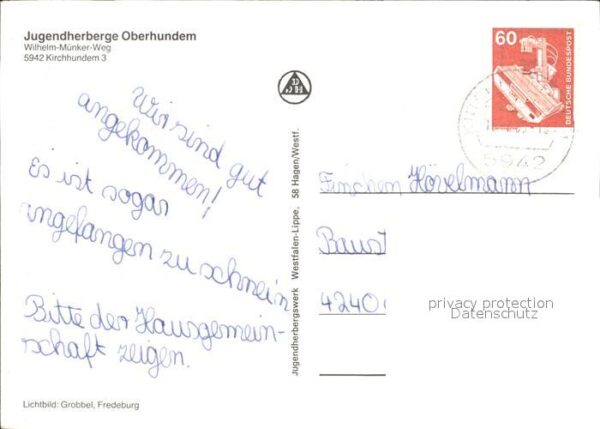 Jugendherberge Oberhundem
Wilhelm-Münker-Weg
5942 Kirchhundem 3
Wir sind gut
angekommen!
Es ist sogar
angefangen zu schnein
Bitte der Hausgemein-
schaft zeigen.
Lichtbild: Grobbel, Fredeburg
DJH
Jugendherbergswerk Westfalen-Lippe, 58 Hagen/Westf.
60
DEUTSCHE BUNDESPOST
5942
Finchen Hövelmann
Baust
4240
privacy protection
Datenschutz